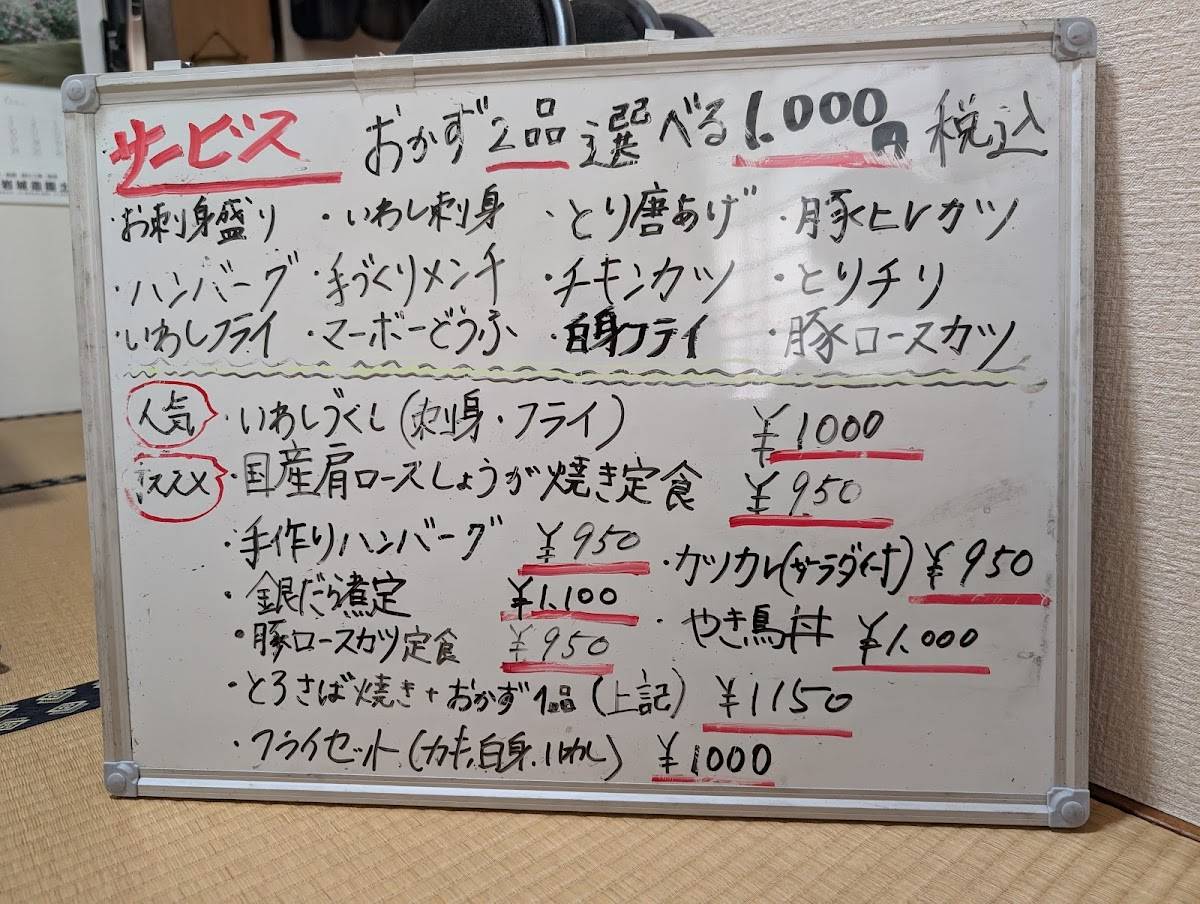 サービス おかず2品選べる1.000円 税込
・お刺身盛り ・いわし刺身 ・とり唐あげ ・豚ヒレカツ
・ハンバーグ ・手づくりメンチ ・チキンカツ ・とりチリ
・いわしフライ ・マーボーどうふ ・白身フライ ・豚ロースカツ
人気 ・いわしづくし(刺身・フライ) ¥1000
・国産肩ロースしょうが焼き定食 ¥950
・手作りハンバーグ ¥950
・カツカレ(サラダ付) ¥950
・銀だら煮定 ¥1.100
・やき鳥丼 ¥1.000
・豚ロースカツ定食 ¥950
・とろさば焼き+おかず1品(上記) ¥1150
・フライセット(カキ.白身.いわし) ¥1000